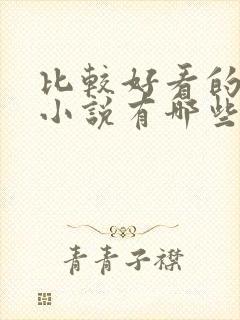 比较好看的
小说有哪些
青青子襟